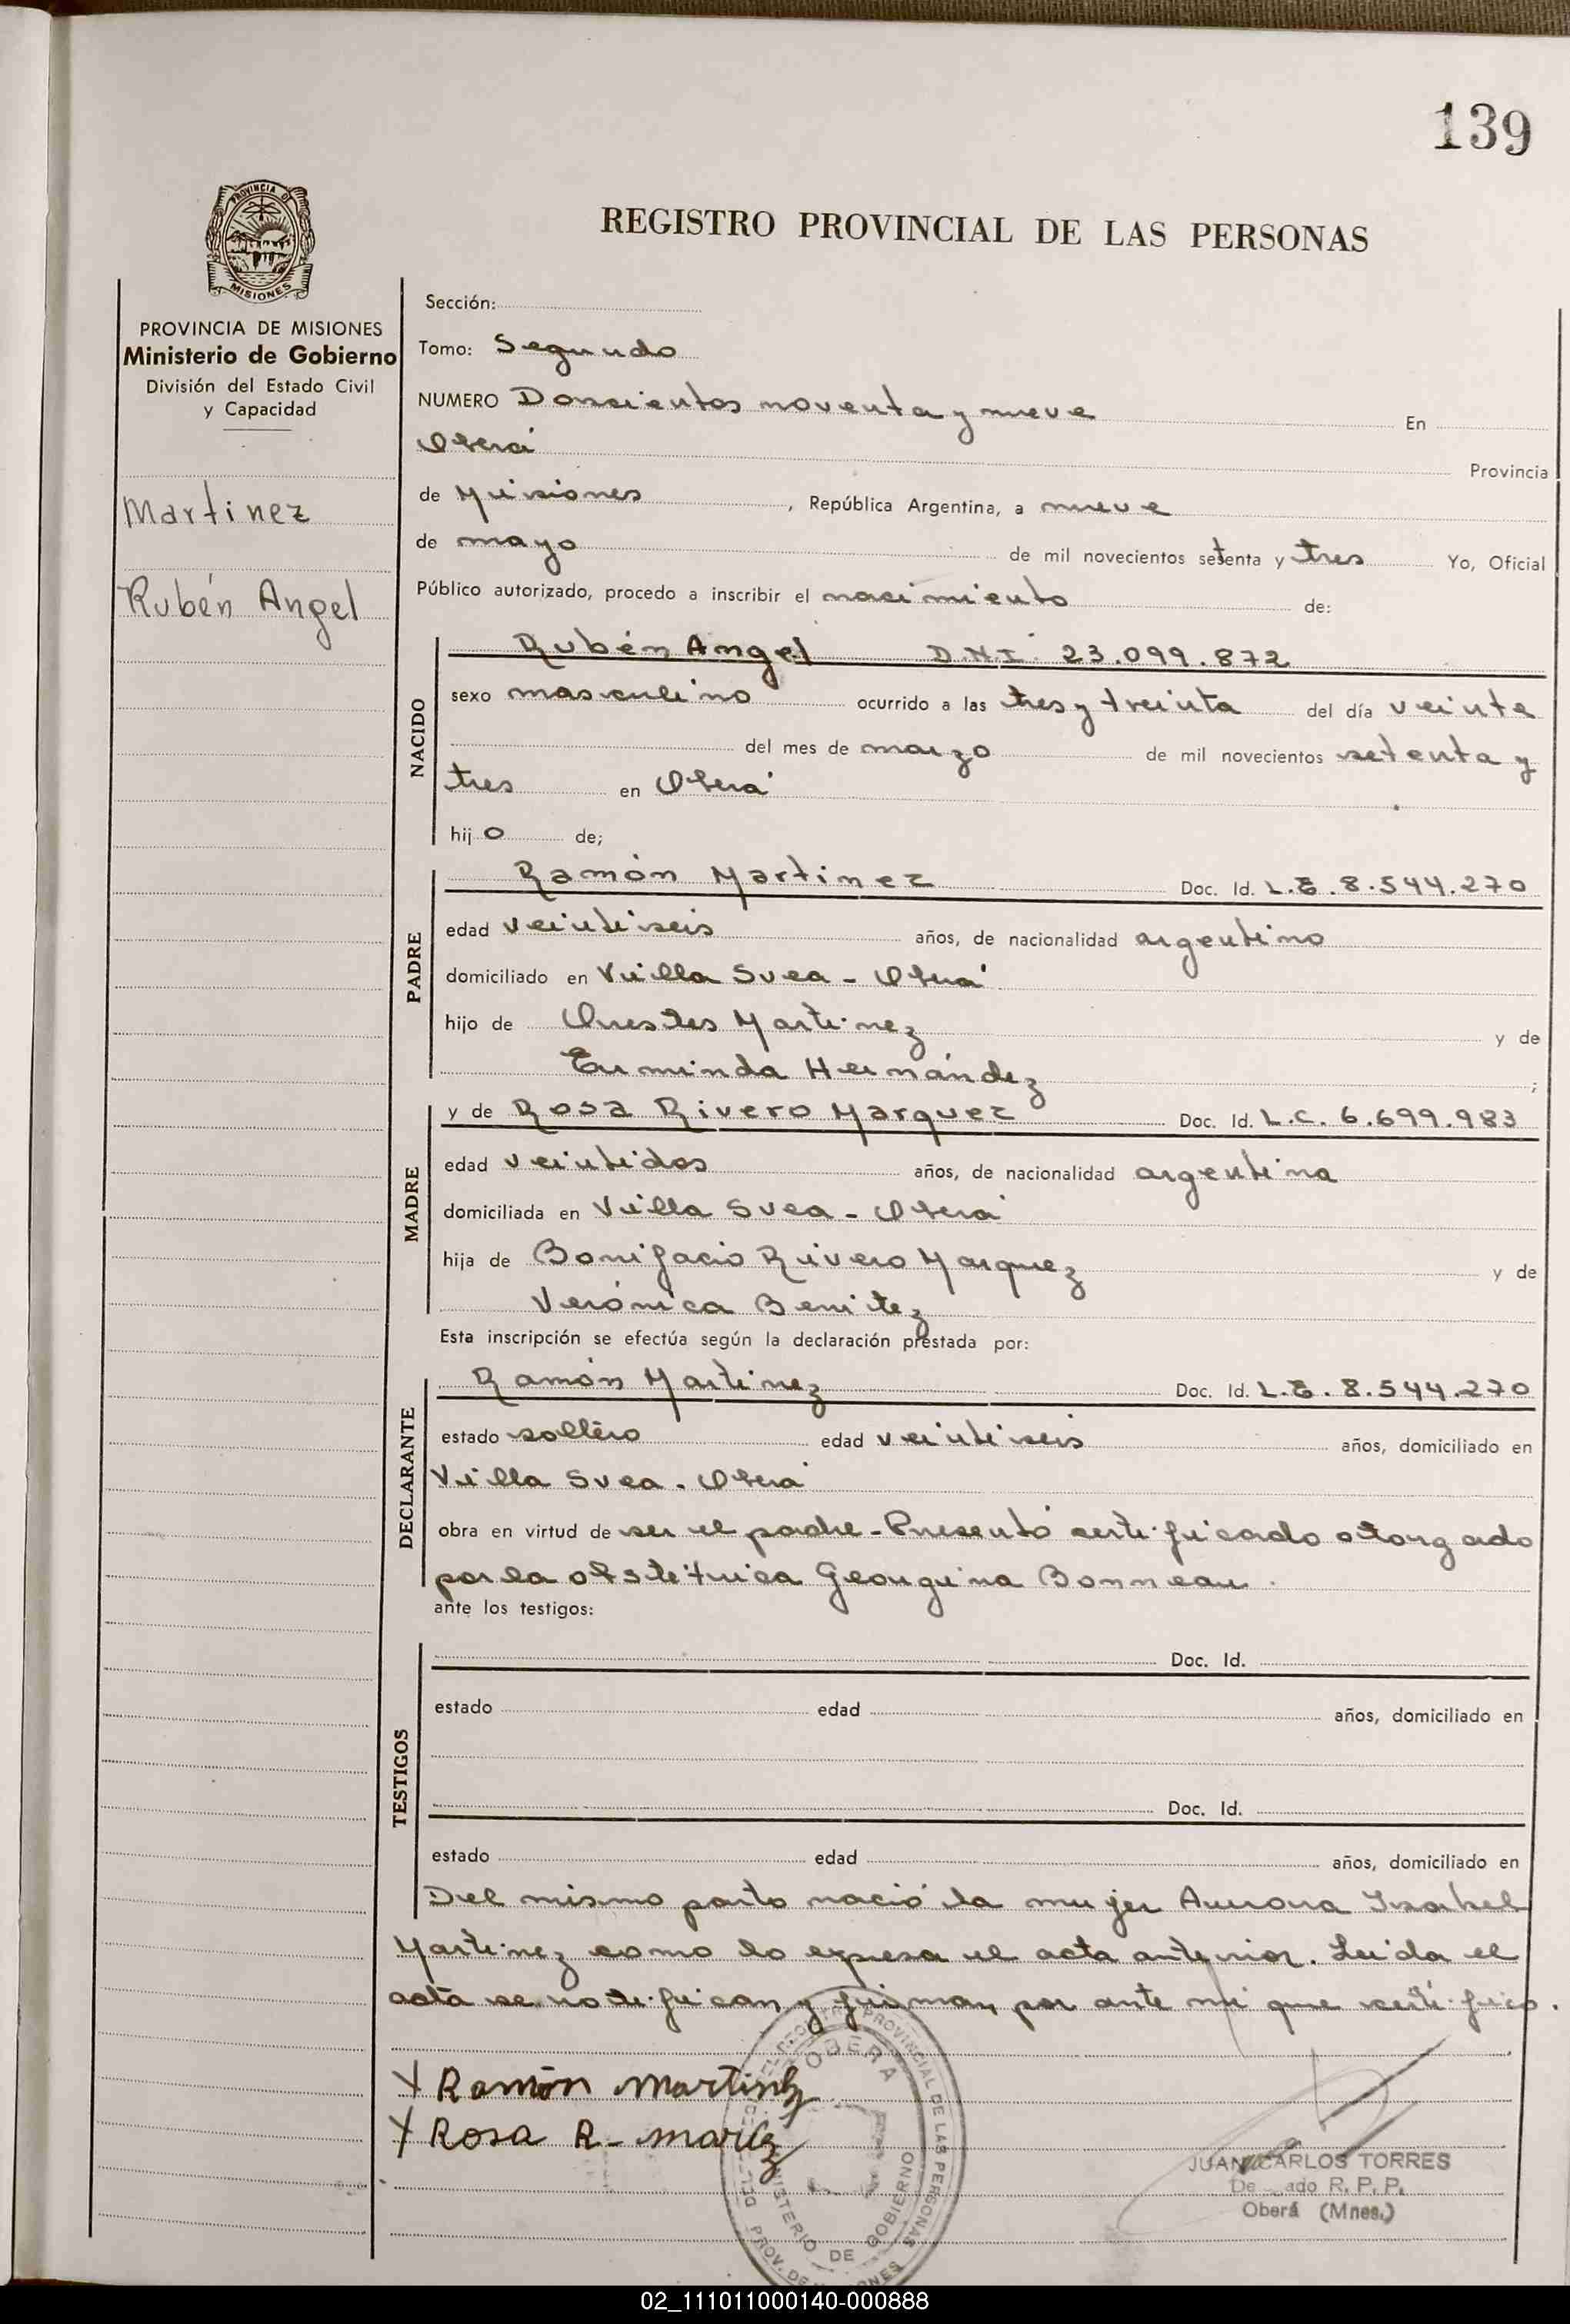 139
PROVINCIA DE
MISIONES
REGISTRO PROVINCIAL DE LAS PERSONAS
PROVINCIA DE MISIONES
Ministerio de Gobierno
División del Estado Civil
y Capacidad
Martinez
Rubén Angel
Sección:
Tomo: Segundo
NUMERO Doscientos noventa y nueve En
Oberá Provincia
de Misiones, República Argentina, a nueve
de mayo de mil novecientos setenta y tres Yo, Oficial
Público autorizado, procedo a inscribir el nacimiento de:
NACIDO
Rubén Angel D.N.I. 23.099.872
sexo masculino ocurrido a las tres y treinta del día veinte
del mes de marzo de mil novecientos setenta y
tres en Oberá
hijo de;
PADRE
Ramón Martinez Doc. Id. L.E. 8.544.270
edad veintiseis años, de nacionalidad argentino
domiciliado en Villa Svea - Oberá
hijo de Orestes Martinez y de
Erminda Hernández;
MADRE
y de Rosa Rivero Marquez Doc. Id. L.C. 6.699.983
edad veintidos años, de nacionalidad argentina
domiciliada en Villa Svea - Oberá
hija de Bonifacio Rivero Marquez y de
Verónica Benitez
Esta inscripción se efectúa según la declaración prestada por:
DECLARANTE
Ramón Martinez Doc. Id. L.E. 8.544.270
estado soltero edad veintiseis años, domiciliado en
Villa Svea - Oberá
obra en virtud de ser el padre - Presentó certificado otorgado
por la obstétrica Georgina Bonneau.
ante los testigos:
TESTIGOS
Doc. Id.
estado edad años, domiciliado en
Doc. Id.
estado edad años, domiciliado en
Del mismo parto nació la mujer Aurora Isabel
Martinez como lo expresa el acta anterior. Leida el
acta se notifican y firman, por ante mi que certifico.
X Ramón Martinez
X Rosa R- Marqz
PROVINCIAL DE LAS PERSONAS
OBERA
MINISTERIO DE GOBIERNO
PROV. DE MISIONES
JUAN CARLOS TORRES
R. P. P.
Oberá (Mnes.)
02_111011000140-000888